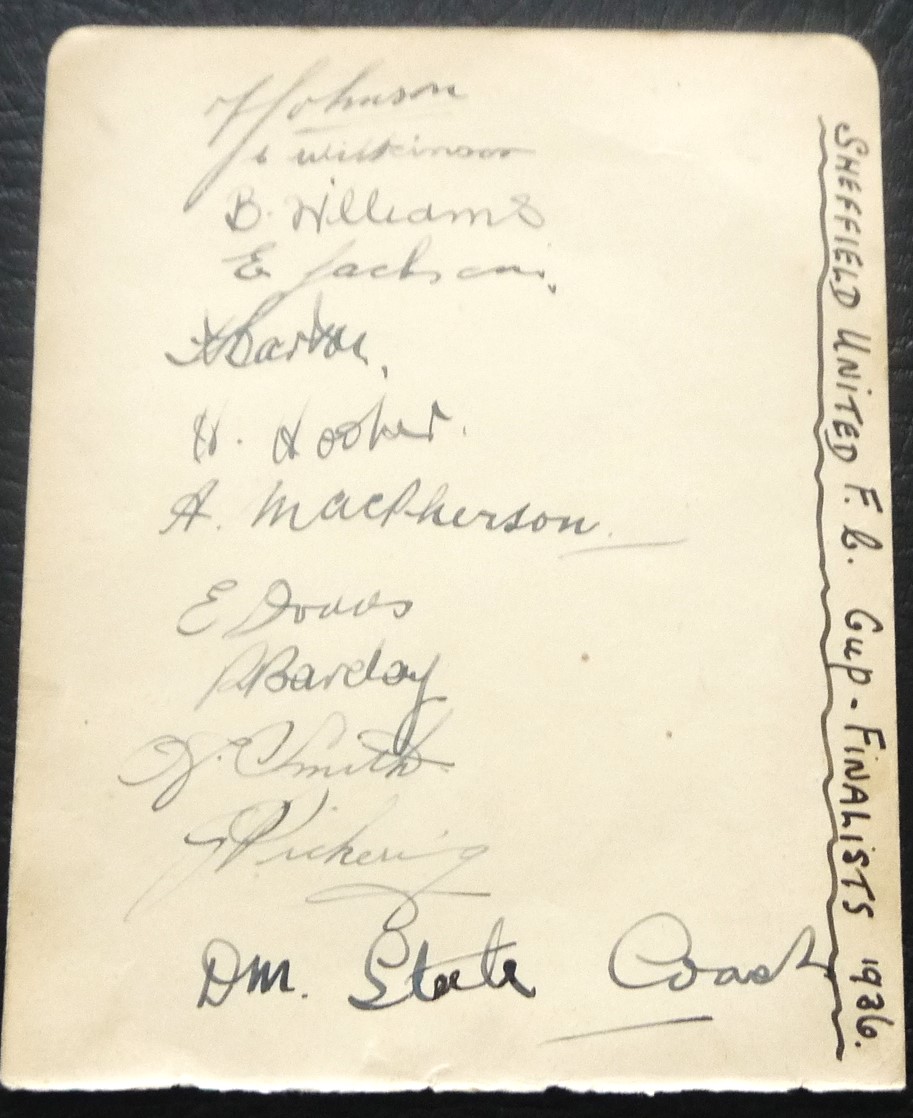 J Johnson
J Wilkinson
B. Williams
E Jackson.
H Barton.
H. Hooper.
A. MacPherson.
E Dodds
R Barclay
J. Smith
J Pickering
DM. Steele Coach
SHEFFIELD UNITED F. C. Cup - FINALISTS 1936.